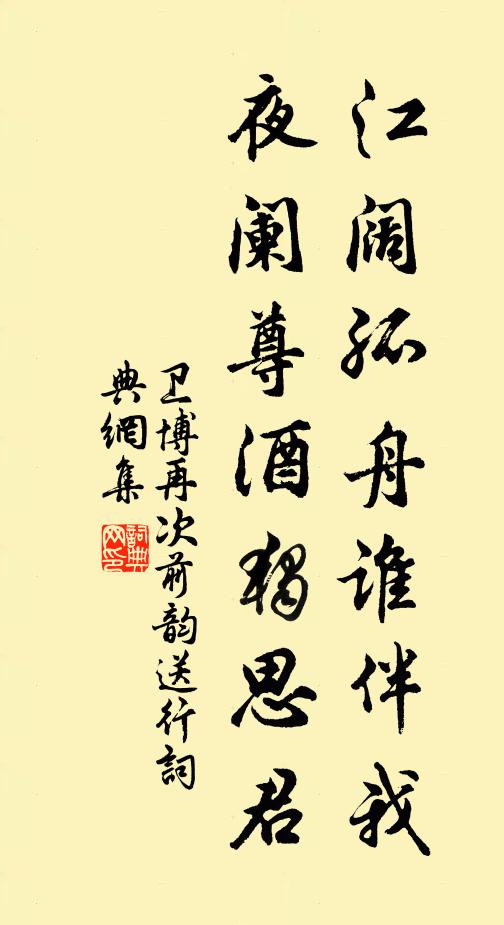 江阔孤舟谁伴我
夜阑尊酒独思君
卫博再次前韵送行词
典網集
詞典
网印